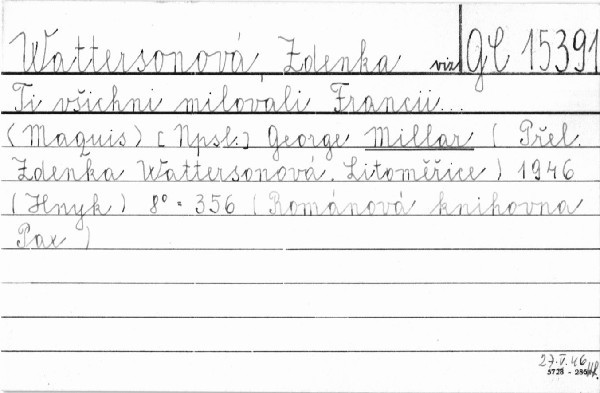 Wattersonová, Zdenka viz GC 15391
Ti všichni milovali Francii...
(Maquis) [Npsl.] George Millar ( Přel.
Zdenka Wattersonová. Litoměřice ) 1946
(Hnyk) 8° - 356 (Románová knihovna
Pax )
27.V.46